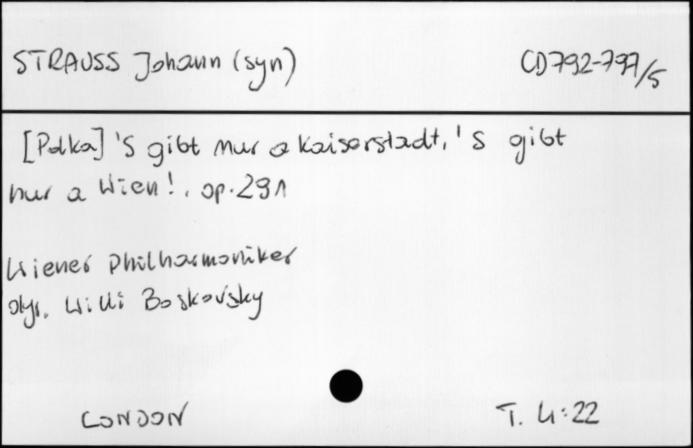 STRAUSS Johann (syn)
CD792-797/5
[Polka] 'S gibt nur a Kaiserstadt, 'S gibt
nur a Wien!. op. 291
Wiener Philharmoniker
dyr. Willi Boskovsky
LONDON
T. 4:22